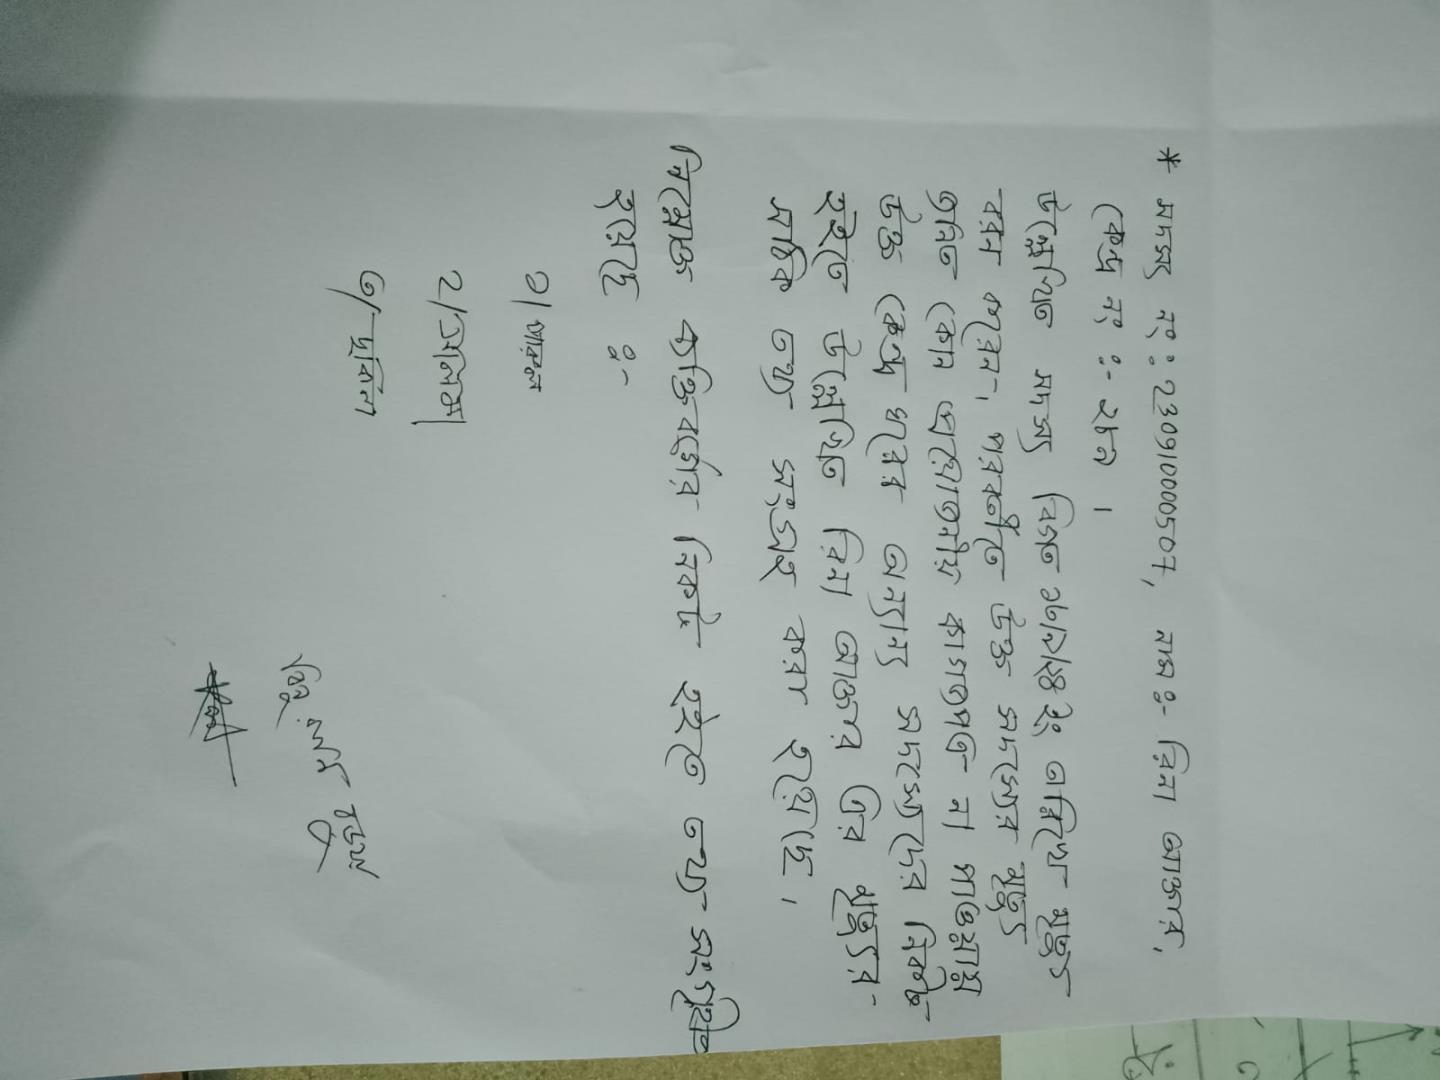 * সদস্য নং: 23091000507, নাম ঃ- রিনা আক্তার,
কেন্দ্র নং ঃ- ২৮৯ ।
উল্লেখিত সদস্য বিগত তারিখে মৃত্যু
বরন করেন, পরবর্তীতে উক্ত সদস্যের মৃত্যু
জনিত কোন প্রয়োজনীয় কাগজপত্র না পাওয়ায়
উক্ত কেন্দ্র ঘরের অন্যান্য সদস্যদের নিকট
হইতে উল্লেখিত রিনা আক্তার এর মৃত্যুর
সঠিক তথ্য সংগ্রহ করা হয়েছে ।
নিম্নোক্ত ব্যক্তিবর্গের নিকট হইতে তথ্য সংগৃহীত
হয়েছে ঃ-
১/ পারুল
২/
৩/